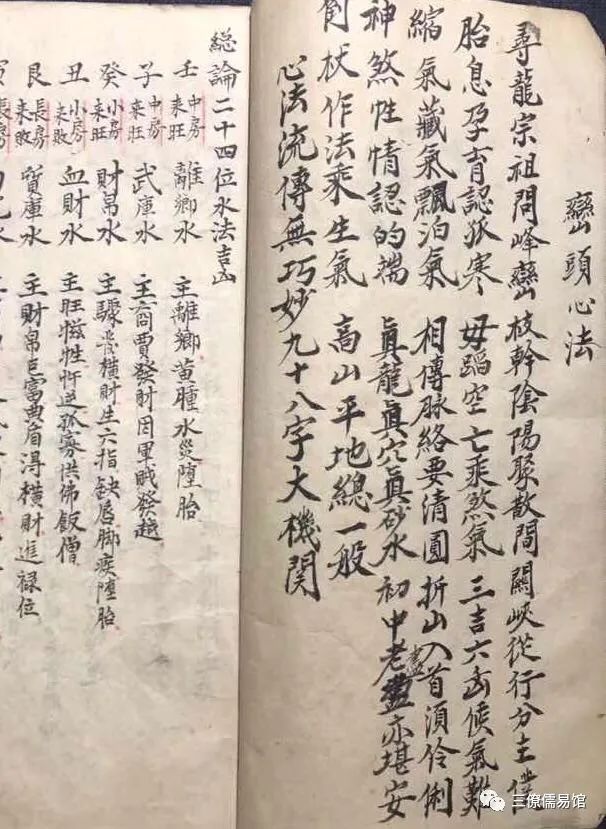 巒頭心法
尋龍宗祖問峰巒 枝幹陰陽聚散間 關峽從行分主僕
胎息孕育認孤寒 毋蹈空亡乘煞氣 三吉六凶候氣難
縮氣藏氣飄泊氣 相傳脉絡要清圓 折山入首須伶俐
神煞性情認的端 真龍真穴真砂水 初中老盡亦堪安
倒杖作法乘生氣 高山平地總一般
心法流傳無巧妙九十八字大機関
総論二十四位水法吉凶
壬 中房来旺 離鄉水 主離鄉黄腫水災堕胎
子 中房来旺 武庫水 主商賈發財因軍賊發越
癸 小房来旺 財帛水 主驟發横財生六指缺唇脚疾堕胎
丑 小房来敗 血財水 主旺牲忤逆孤寡供佛飯僧
艮 長房来敗 貭庫水 主財帛巨富典庫淂横財進禄位
寅 長房来敗
三僚儒易馆